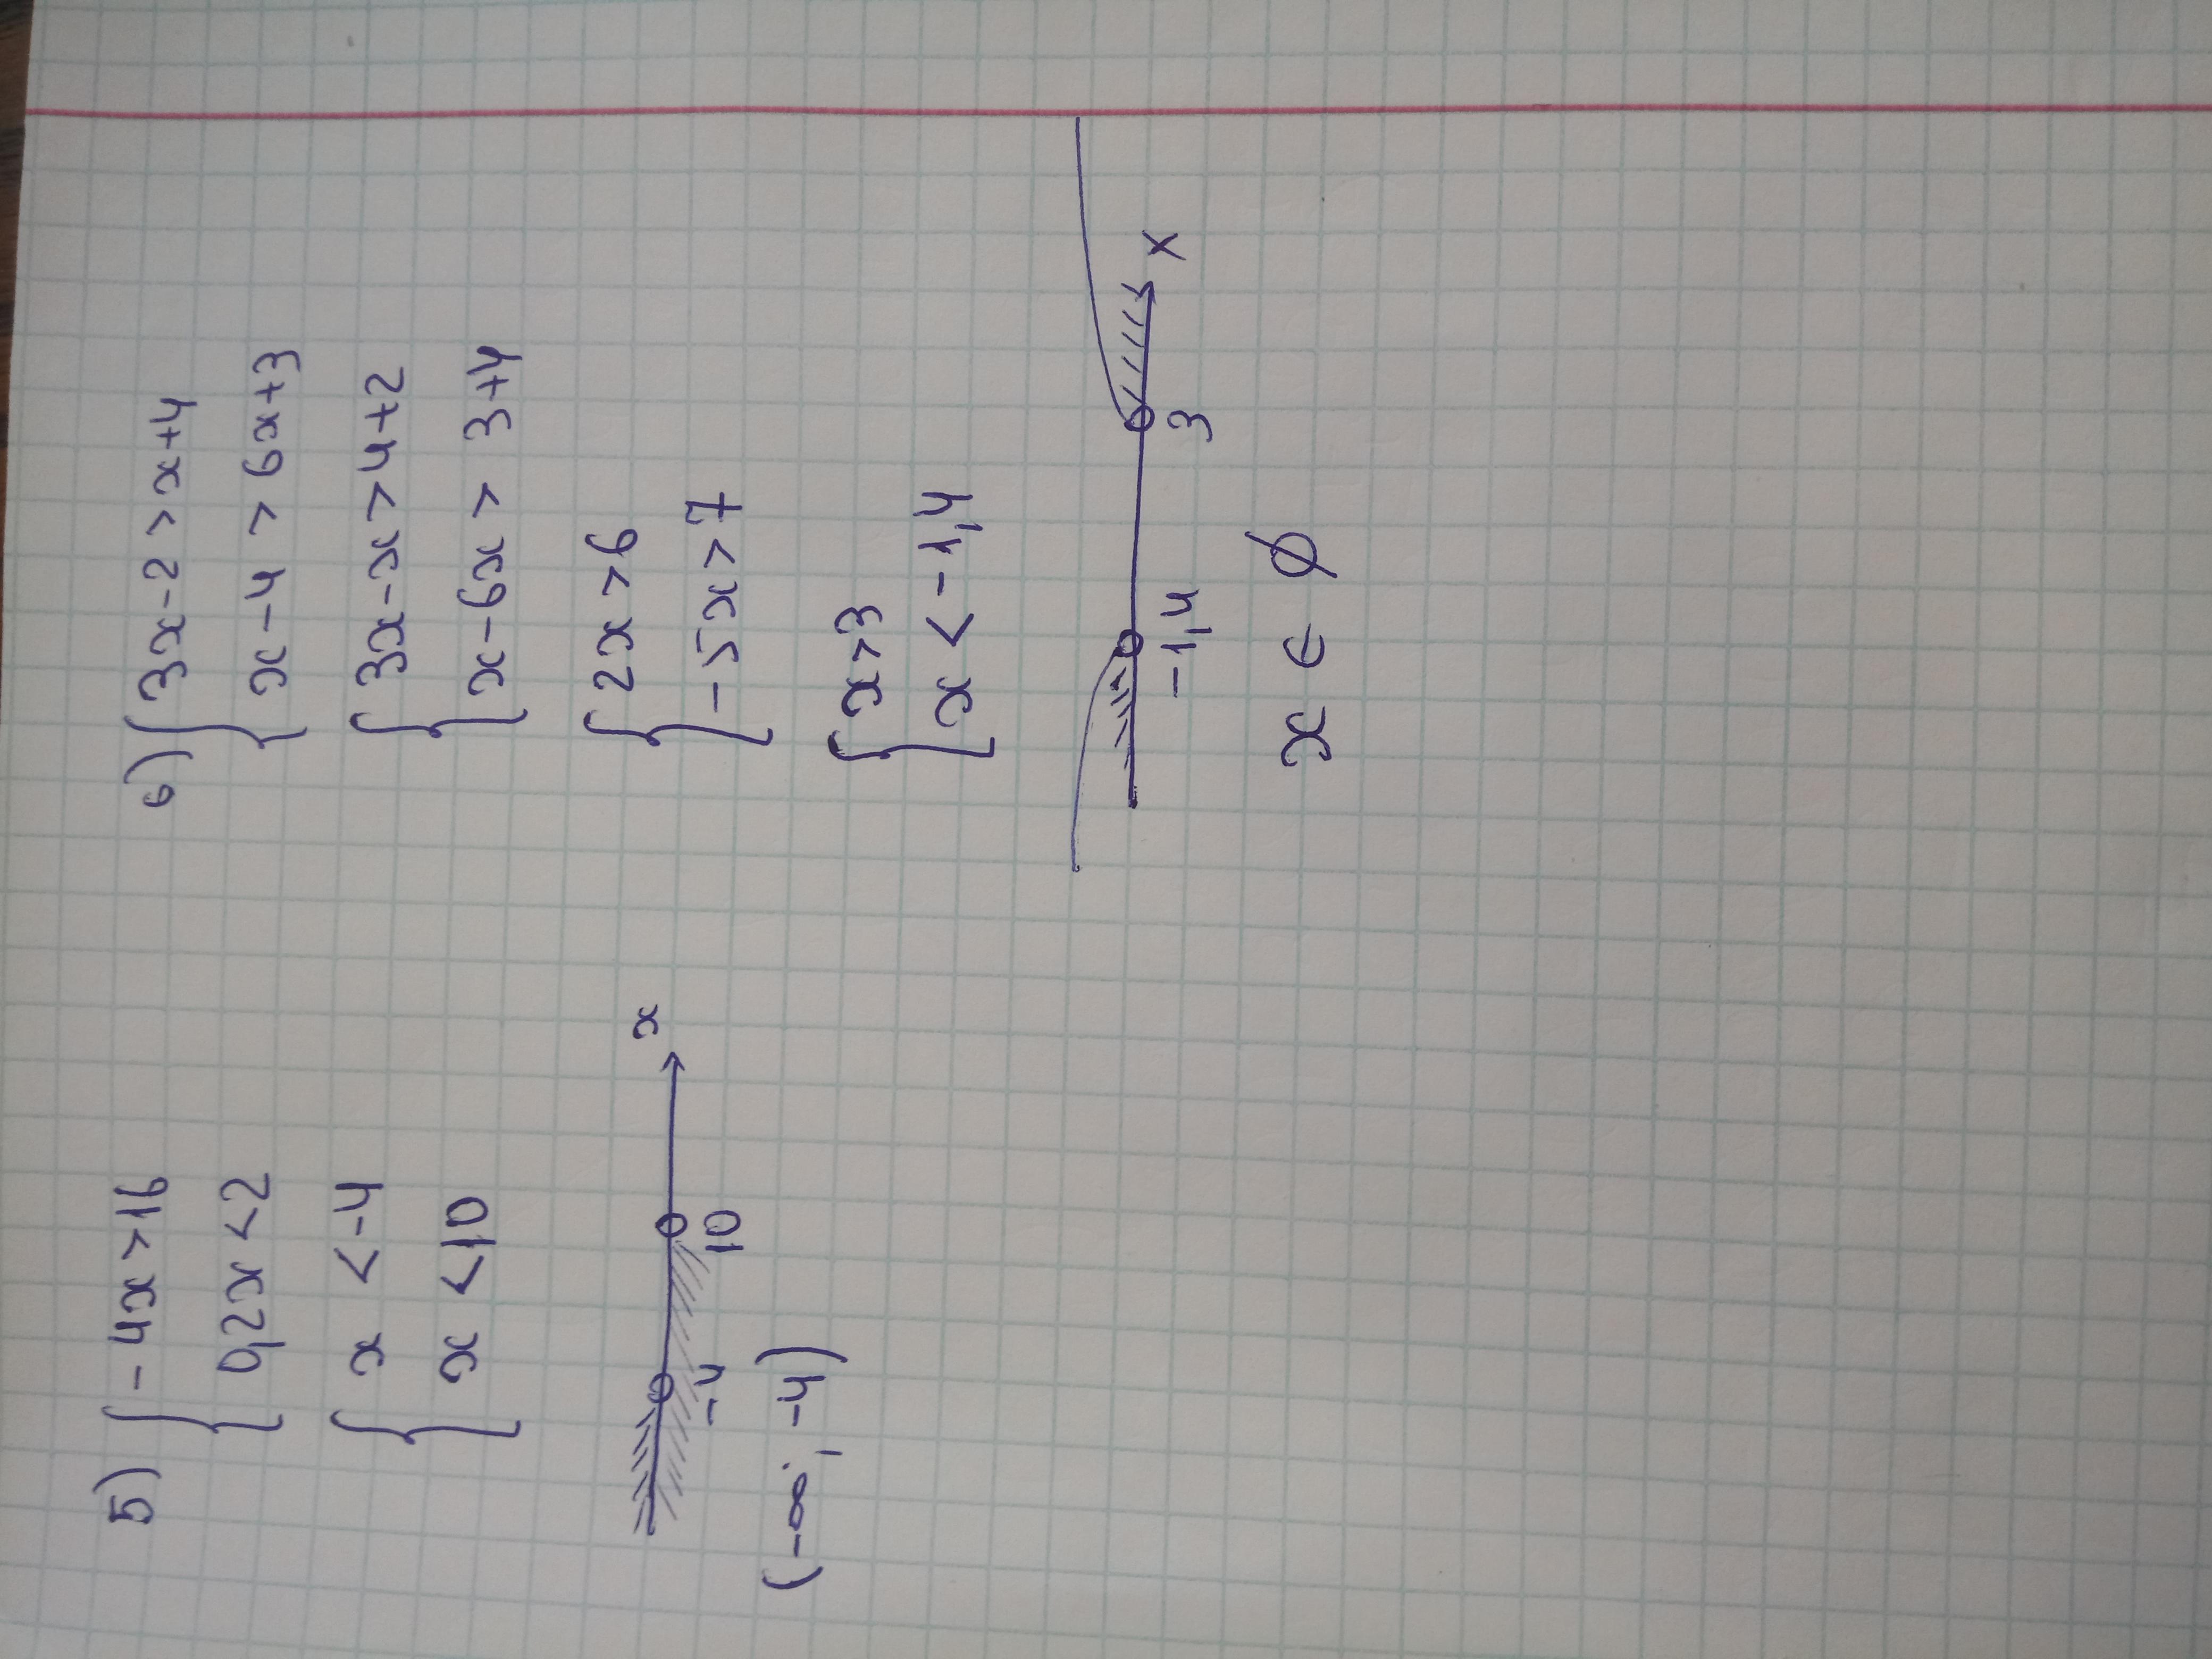 5) { -4x > 16
0,2x < 2
{ x < -4
x < 10
x
-4 10
(-∞; -4)
6) { 3x-2 > x+4
x-4 > 6x+3
{ 3x-x > 4+2
x-6x > 3+4
{ 2x > 6
-5x > 7
{ x > 3
x < -1,4
-1,4 3 x
x ∈ ∅